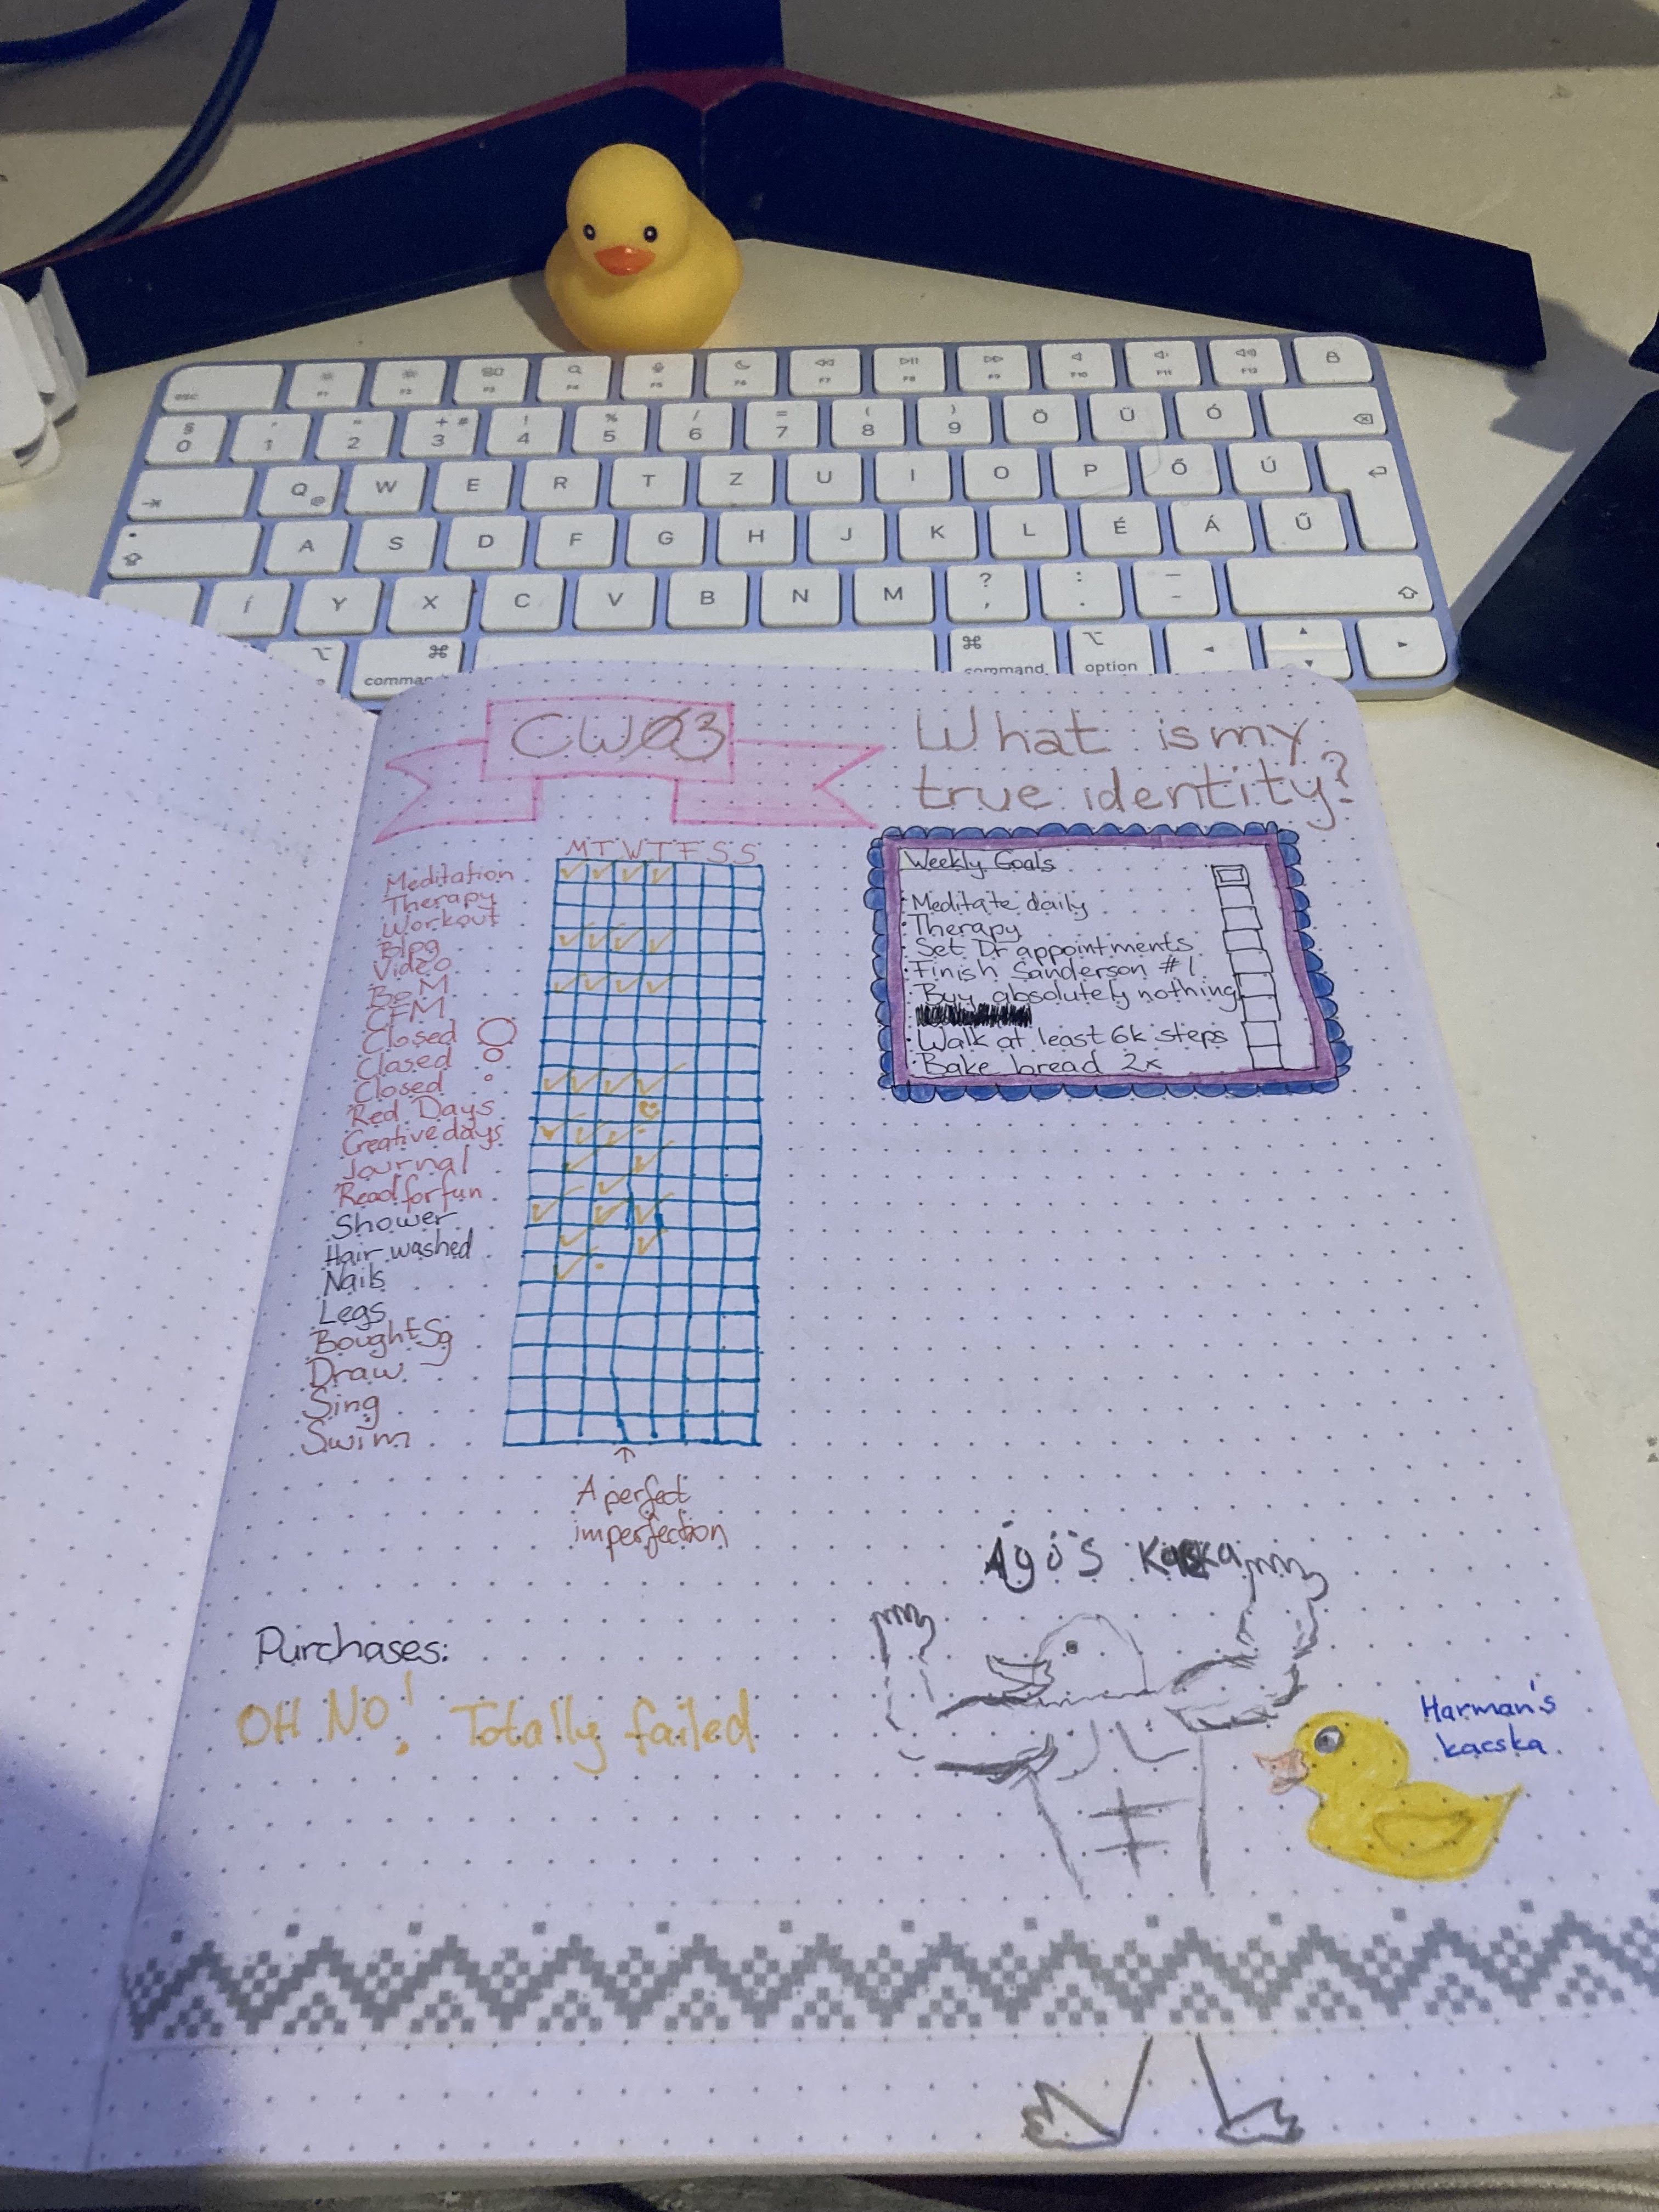 esc F1 F2 F3 F4 F5 F6 F7 F8 F9 F10 F11 F12
§ 0 ' 1 " 2 + # 3 ! 4 % 5 / 6 = 7 ( 8 ) 9 Ö Ü Ó
Q @ W E R T Z U I O P Ő Ú
A S D F G H J K L É Á Ű
Í Y X C V B N M ? , : . — -
⌥ ⌘ ⌘ ⌥
command option
CW03
What is my
true identity?
M T W T F S S
Meditation
Therapy
Workout
Blog
Video
BoM
CFM
Closed
Closed
Closed
Red Days
Creative days
Journal
Read for fun
Shower
Hair washed
Nails
Legs
Bought Sg
Draw
Sing
Swim
A perfect
imperfection
Weekly Goals
Meditate daily
Therapy
Set Dr appointments
Finish Sanderson #1
Buy absolutely nothing
Walk at least 6k steps
Bake bread 2x
Purchases:
OH NO! Totally failed
Ágó's
Harman's
kacska